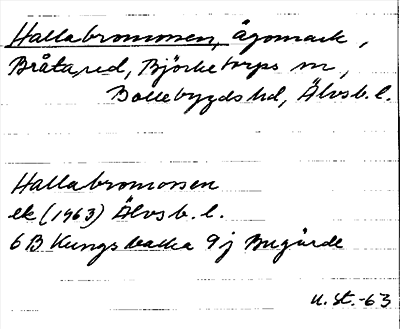 Hallabromossen, Ägomark,
Bråta, red, Björketorps sn,
Bollebygds hd, Älvsb. l.
Hallabromossen
ek (1963) Älvsb. l.
6B Kungsbacka 9j Bugärde
U. St. -63